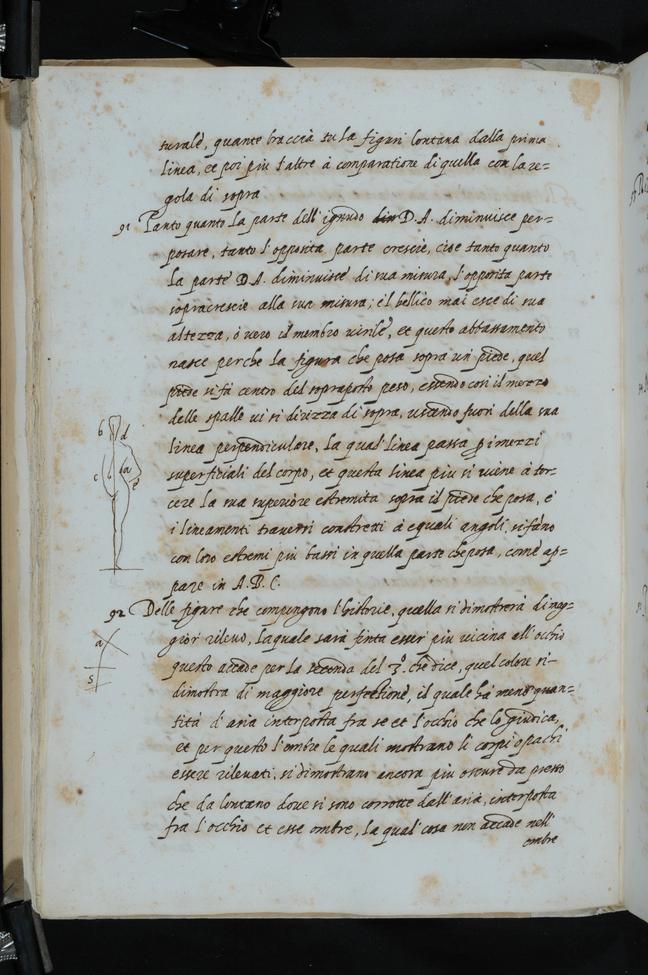 turale, quante braccia su la figura lontana dalla prima
linea, et poi piu l'altre à comparatione di quella con la re=
gola di sopra
91 Tanto quanto la parte dell'ignudo din D.A. diminuisce per
posare, tanto l'opposita parte crescie, cioe tanto quanto
la parte D.A. diminuisce di sua misura, l'opposita parte
sopracrescie alla sua misura; e'l bellico mai esce di sua
altezza, ò vero il membro virile, et questo abbassamento
nasce perche la figura che posa sopra un piede, quel
piede si fà centro del sopraposto peso, essendo cosi il mezzo
delle spalle vi si dirizza di sopra, uscendo fuori della sua
linea perpendiculare, la qual linea passa p i mezzi
superficiali del corpo, et questa linea piu si viene à tor=
cere la sua superiore estremita sopra il piede che posa, e
i lineamenti traversi constretti à equali angoli, si fano
con loro estremi piu bassi in quella parte che posa, come ap=
pare in A.B.C.
b d
c b a
92 Delle figure che compongono l'historie, quella si dimostrerà di mag=
gior rilevo, laquale sarà finta esser piu vicina all'occhio
questo accade per la seconda del 3º. che dice, quel colore si
dimostra di maggiore perfettione, il quale hà meno quan=
tità d'aria interposta fra se et l'occhio che lo giudica,
et per questo l'ombre le quali mostrano li corpi opachi
essere rilevati, si dimostrano ancora piu oscure da presso
che da lontano dove si sono corrotte dall'aria, interposta
fra l'occhio et esse ombre, la qual cosa non accade nell'
ombre
a
s